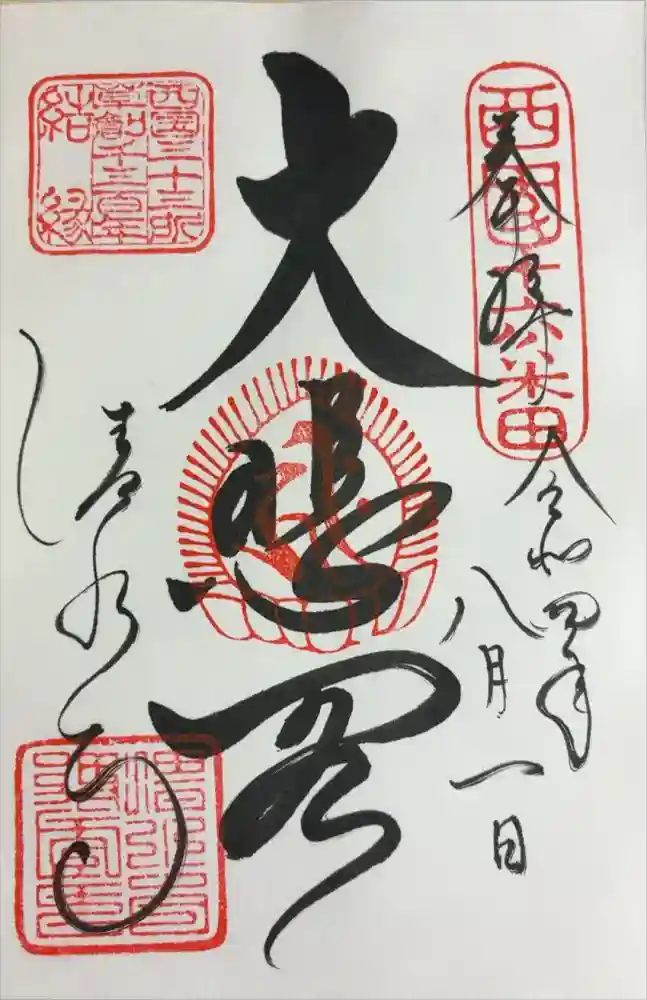 奉拝
令和四年
八月一日
西国十六番
大悲閣
清水寺
西国三十三所
草創千三百年
結縁